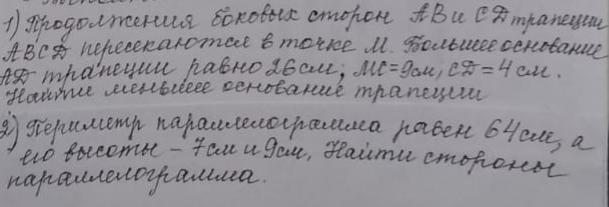 1) Продолжения боковых сторон АВ и СД трапеции
АВСД пересекаются в точке М. Большее основание
АД трапеции равно 26 см, МС=9см, СД=4 см.
Найти меньшее основание трапеции
2) Периметр параллелограмма равен 64 см, а
его высоты - 7см и 9см, Найти стороны
параллелограмма.